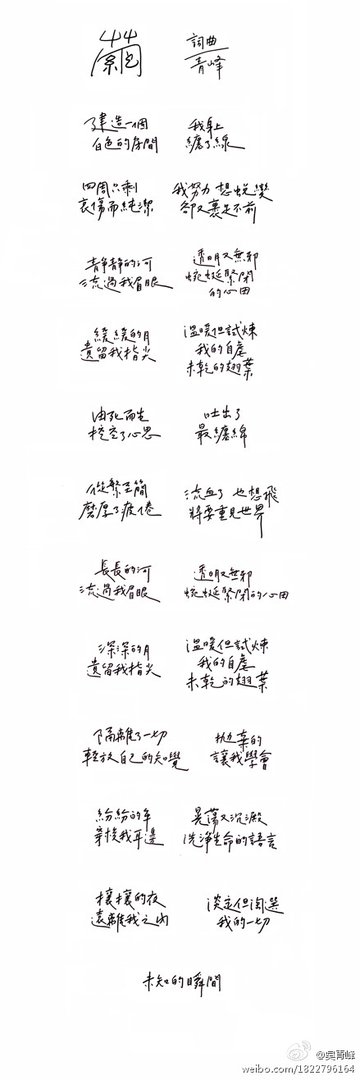 繭
詞曲
青峰
建造一個
白色的房間
我身上
纏了線
四周只剩
哀傷而純潔
我努力 想蛻變
卻又裹足不前
靜靜的河
流過我眉眼
透明又無邪
蜿蜒緊閉
的心田
緩緩的月
遺留我指尖
溫暖但試煉
我的自虐
未乾的翅葉
由死而生
挖空了心思
吐出了
最纏綿
從繁至簡
磨厚了疲倦
流血了 也想飛
將要重見世界
長長的河
流過我眉眼
透明又無邪
蜿蜒緊閉的心田
深深的月
遺留我指尖
溫暖但試煉
我的自虐
未乾的翅葉
隔離了一切
輕放自己的知覺
拋棄的
讓我學會
紛紛的年
穿梭我耳邊
晃蕩又沉澱
洗淨生命的語言
攘攘的夜
遠離我之內
淡定但淘選
我的一切
未知的瞬間
@吳青峰
weibo.com/1822796164